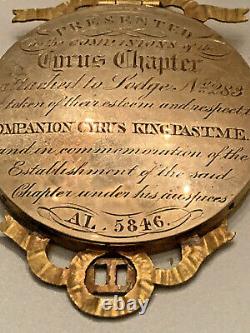 PRESENTED
by the COMPANIONS of the
Cyrus Chapter
attached to Lodge No. 283
token of their esteem and respect to
COMPANION CYRUS KING, PAST. M.E.
and in commemoration of the
Establishment of the said
Chapter under his auspices
AL. 5846.